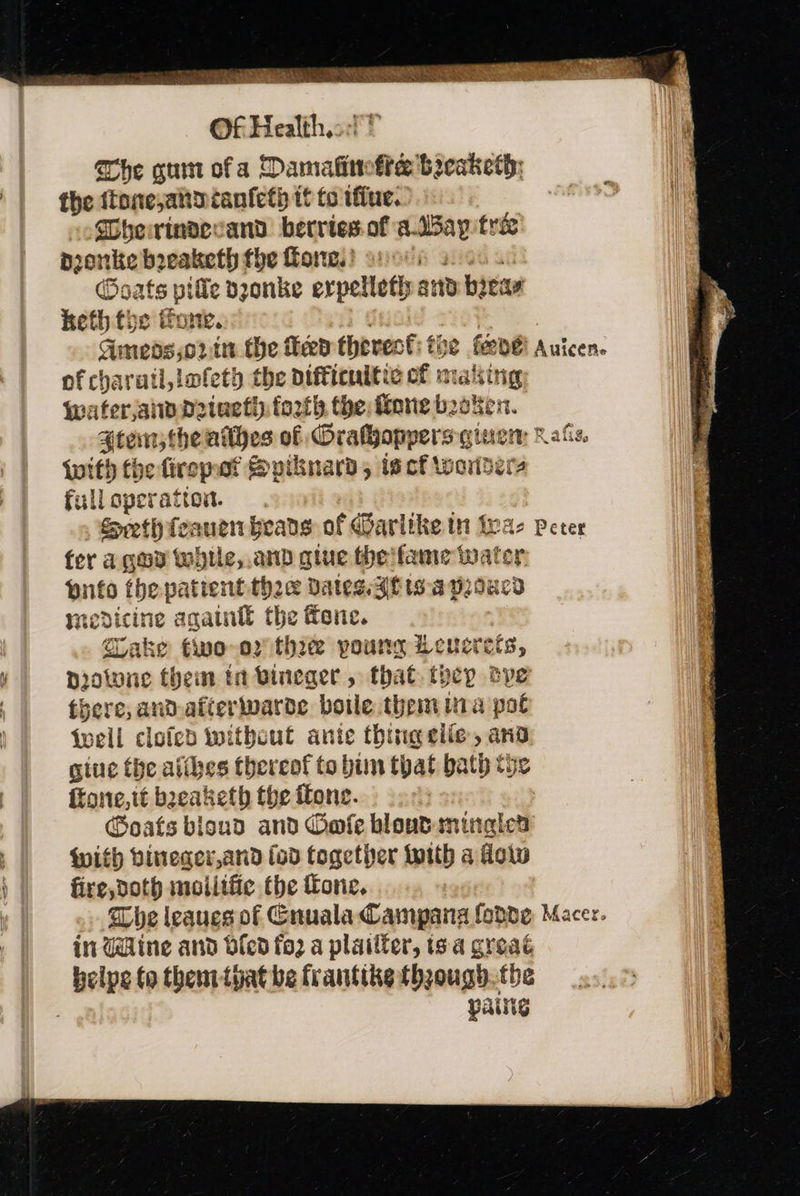 Of Health.
The gum of a Damasin tree breaketh
the stone, and causeth it to issue.
The rinde and berries of a Bay tree
dronke breaketh the stone.
Goats pisse dronke expelleth and brea-
keth the stone.
Ameos, or in the steed thereof: the seede Auicen.
of charuil, looseth the difficultie of making
water, and driueth forth the stone broken.
Item, the asshes of Grasshoppers giuen Rasis.
with the sirop of Spiknard, is of wonder-
full operation.
Seeth seauen heads of Garlike in wa- Peter
ter a good while, and giue the same water
vnto the patient three dates. It is a prooued
medicine against the stone.
Take two or three young Leuerets,
drowne them in vineger, that they dye
there, and afterwarde boile them in a pot
well closed without anie thing else, and
giue the asshes thereof to him that hath the
stone, it breaketh the stone.
Goats bloud and Goose bloud mingled
with vineger, and sod together with a slow
fire, doth mollifie the stone.
The leaues of Enuala Campana sodde Macer.
in Wine and vsed for a plaister, is a great
helpe to them that be frantike through the
paine